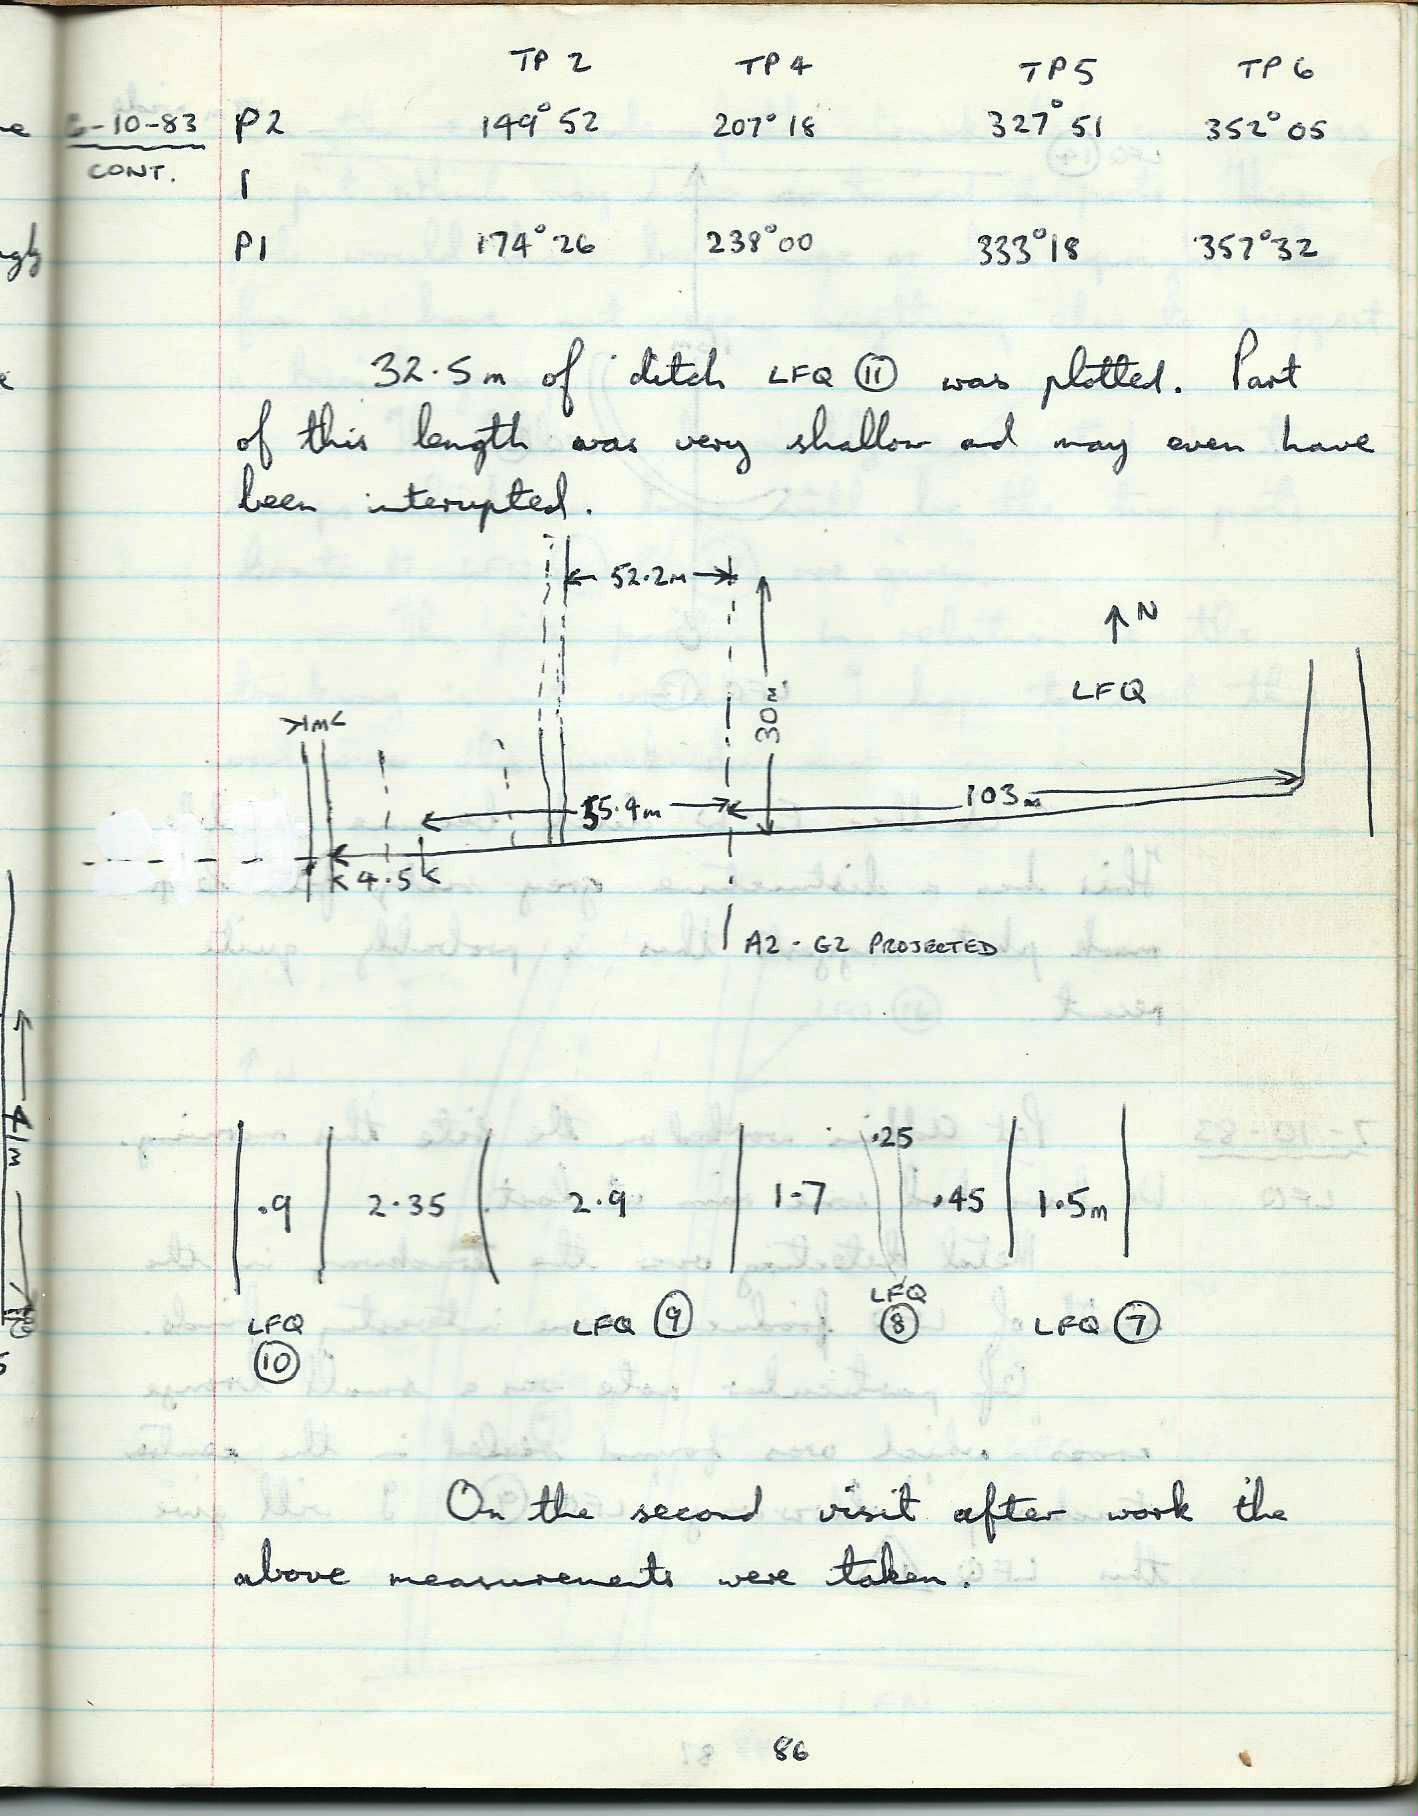 TP 2 TP 4 TP 5 TP 6
-10-83 P2 149° 52 207° 18 327° 51 352° 05
CONT. 1
P1 174° 26 238° 00 333° 18 357° 32
32.5m of ditch LFQ 11 was plotted. Part
of this length was very shallow and may even have
been interupted.
52.2m
N
30m
LFQ
1m
103m
4.5
A2 - G2 PROJECTED
41m
.25
.9 2.35 2.9 1.7 .45 1.5m
LFQ 10 LFQ 9 LFQ 8 LFQ 7
On the second visit after work the
above measurements were taken.
86